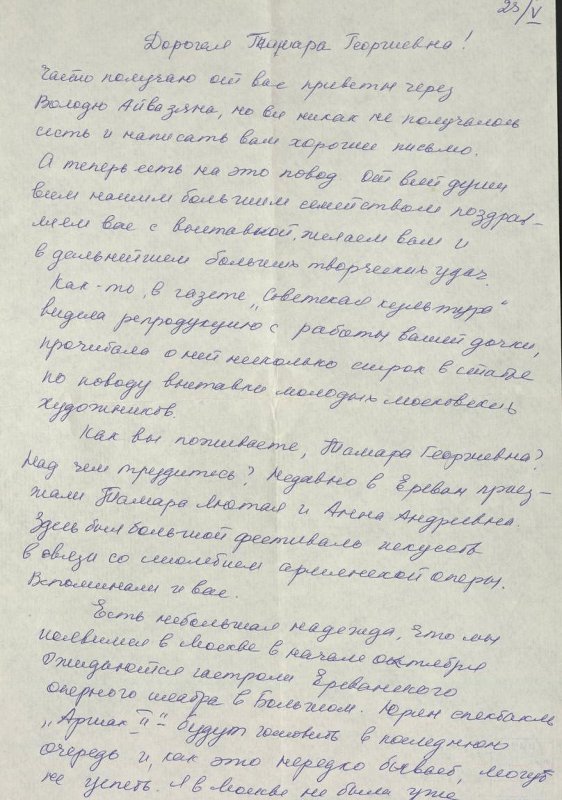 23/V
Дорогая Тамара Георгиевна!
Часто получаю от вас приветы через
Володю Айвазяна, но все никак не получалось
сесть и написать вам хорошее письмо.
А теперь есть на это повод. От всей души
всем нашим большим семейством поздрав-
ляем вас с выставкой, желаем вам и
в дальнейшем больших творческих удач.
Как-то, в газете „Советская культура"
видела репродукцию с работы вашей дочки,
прочитала о ней несколько строк в статье
по поводу выставки молодых московских
художников.
Как вы поживаете, Тамара Георгиевна?
Над чем трудитесь? Недавно в Ереван приез-
жали Тамара Лютая и Анна Андреевна.
Здесь был большой фестиваль искусств
в связи со столетием армянской оперы.
Вспоминали и вас.
Есть небольшая надежда, что мы
появимся в Москве в начале октября
Ожидаются гастроли Ереванского
оперного театра в Большом. Юрин спектакль
„Аршак II" будут готовить в последнюю
очередь и, как это нередко бывает, могут
не успеть. Я в Москве не была уже